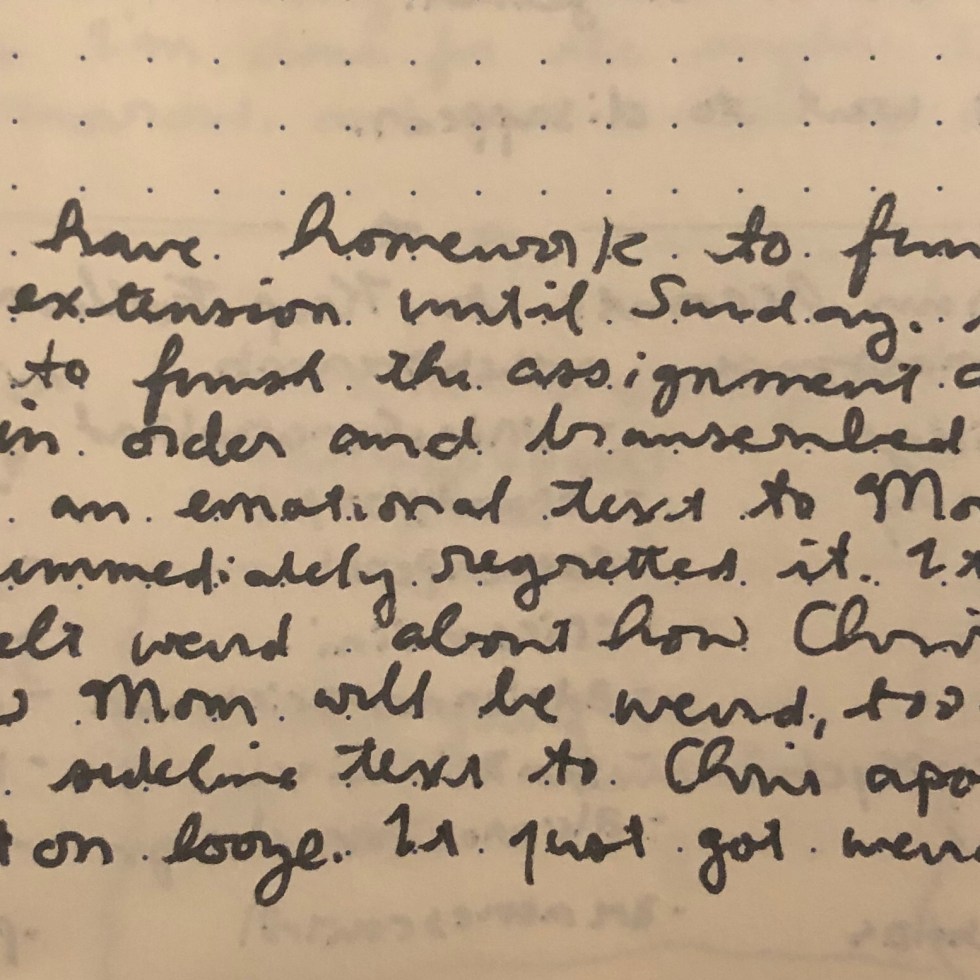 have homework to fin
extension until Sunday.
to finish the assignment
in order and transcribed
an emotional text to Mo
immediately regretted it. It
elt weird about how Chris
Mom will be weird, too
sideline text to Chris apo
t on booze. It just got weir